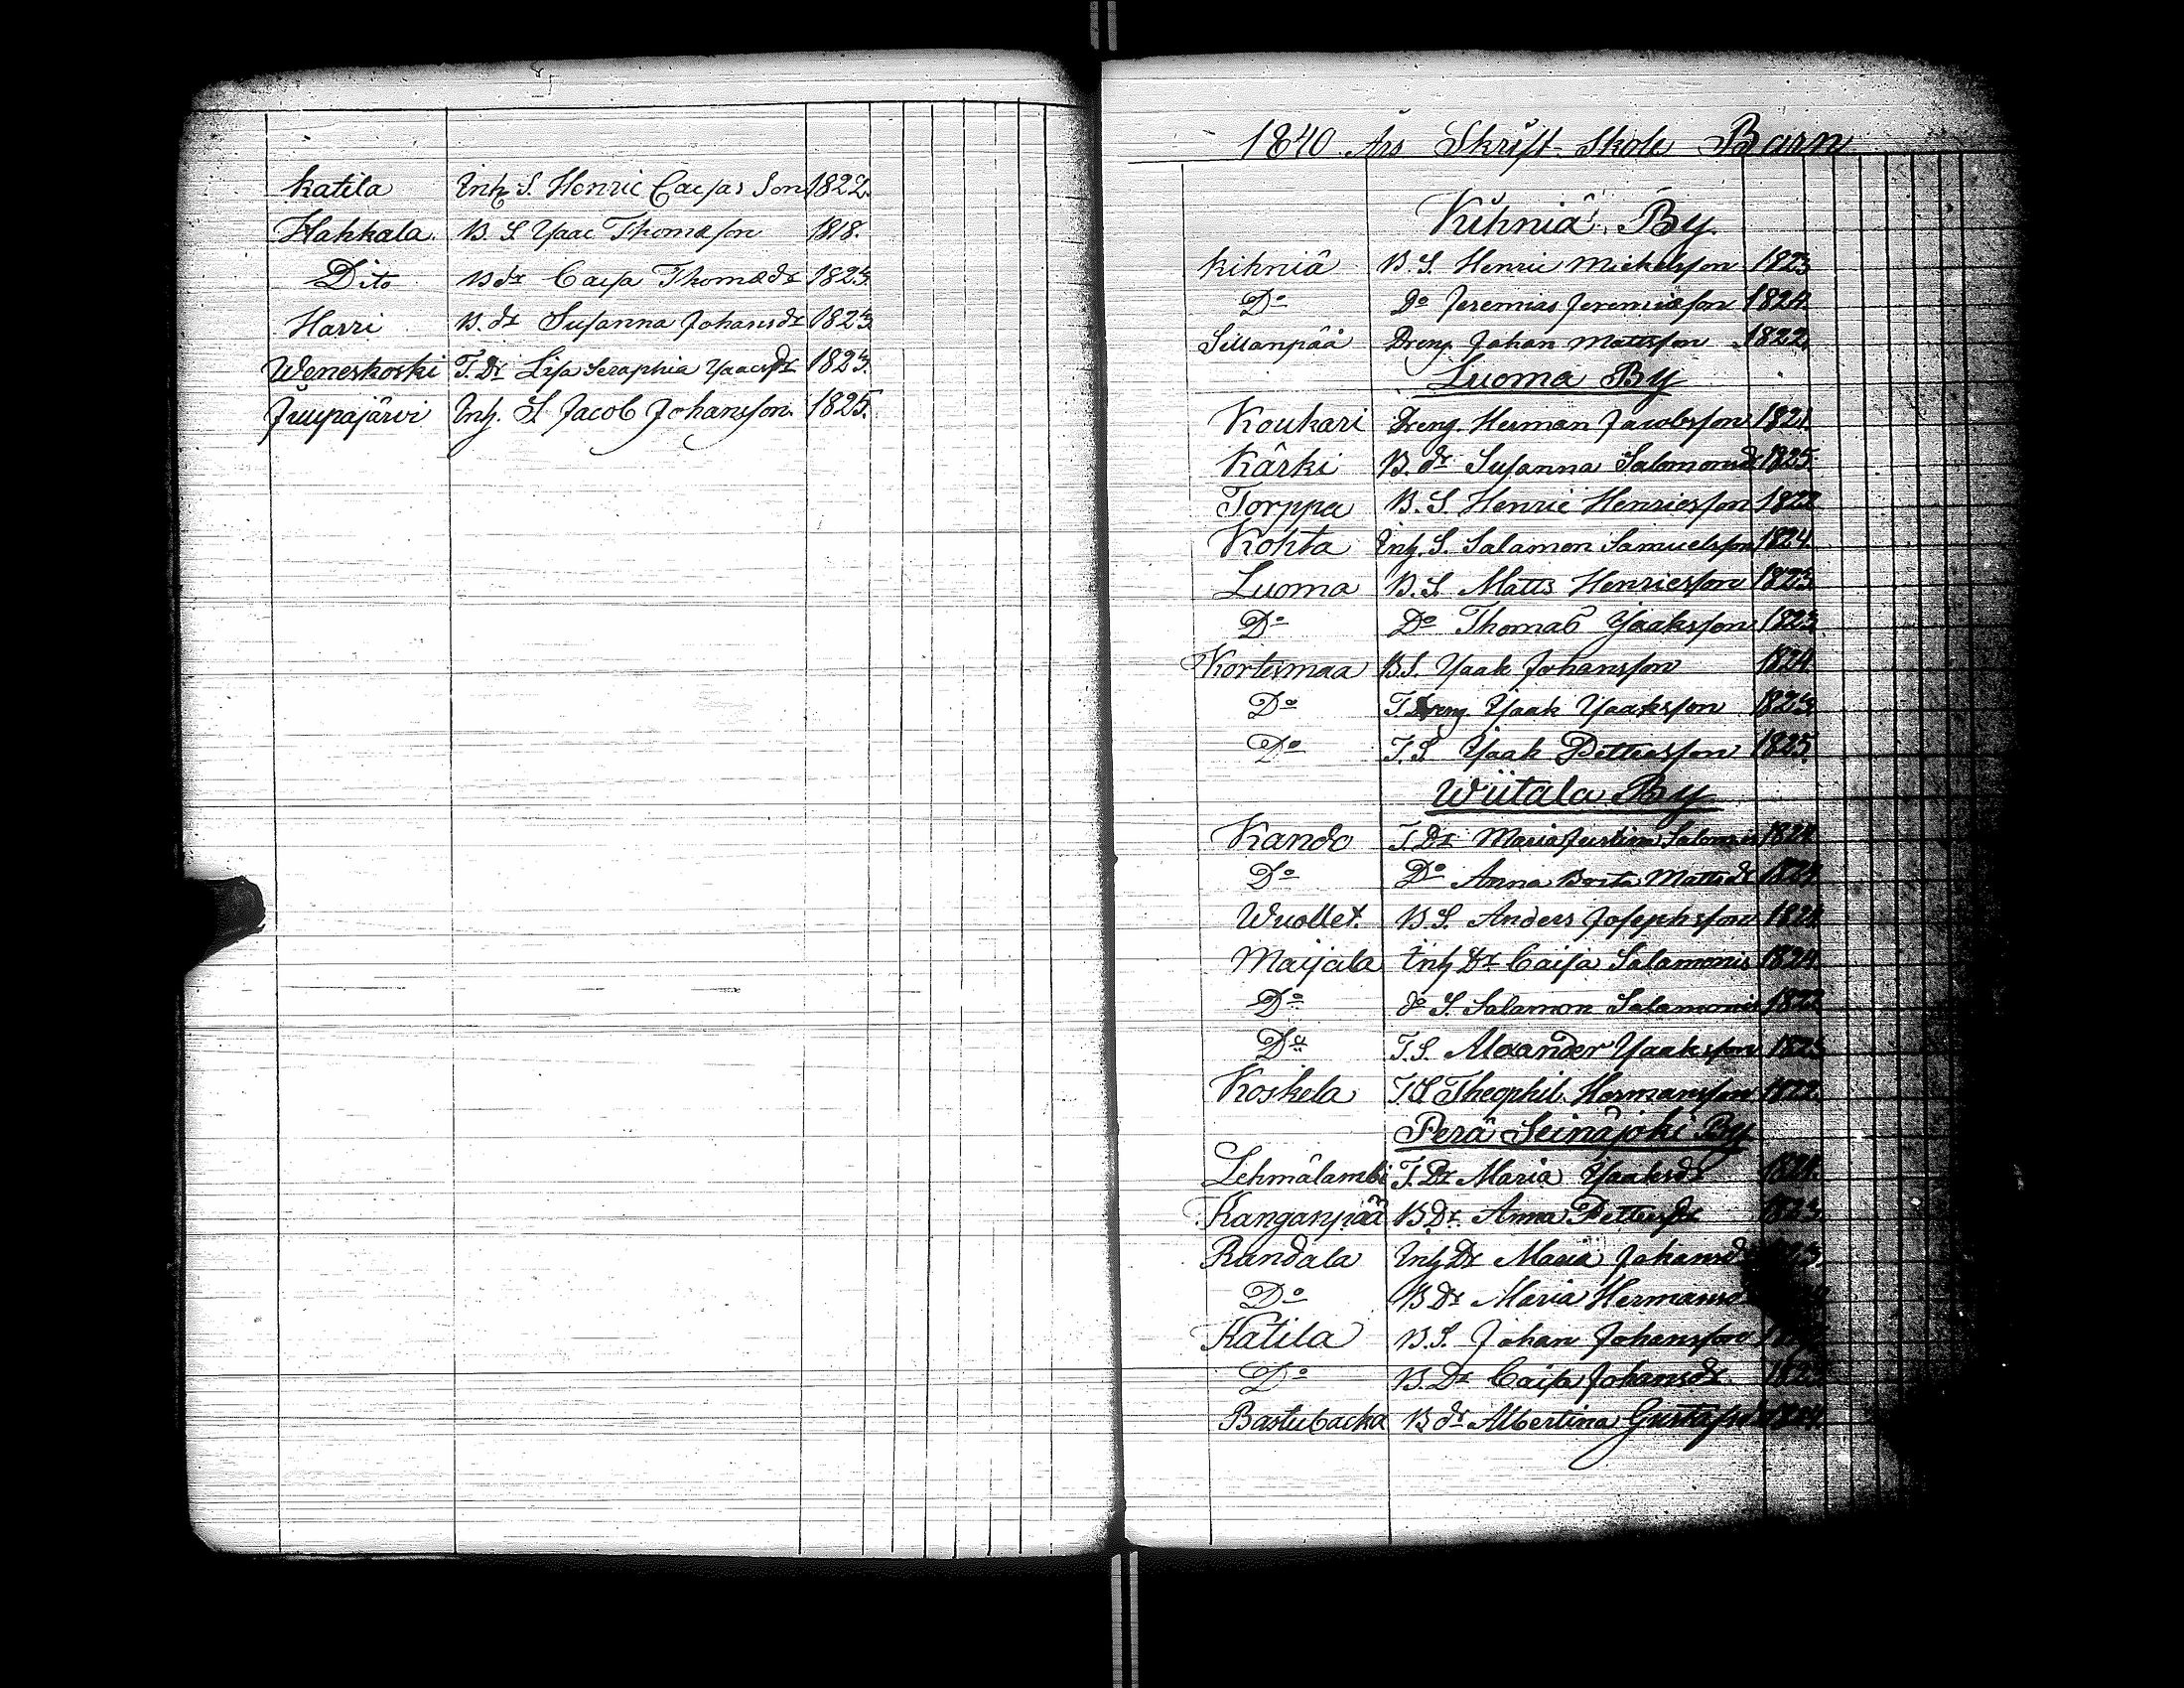 Katila Inh. S. Henric Caisas Son 1822.
Hakkala. B. S. Ysaac Thomasson 1818.
Dito B dr Caisa Thomædr 1823.
Harri B. dr Susanna Johansdr 1823.
Weneskoski T. Dr Lisa Seraphia Ysacsdr 1823.
Juupajärvi Inh. S. Jacob Johansson. 1825.
1840 Års Skrift Skole Barn
Kihniä By
Kihniä B. S. Henric Mickelsson 1823
Do Do Jeremias Jeremiæsson 1824
Sillanpää Dreng Johan Mattsson 1822.
Luoma By
Koukari Dreng. Herman Jacobsson 1821.
Kärki B. dr Susanna Salomonsd 1825.
Torppa B. S. Henric Henricsson 1822
Kohta Inh. S. Salamon Samuelsson 1824.
Luoma B. S. Matts Henricsson 1823.
Do Do Thomas Ysaksson 1823.
Kortesmaa B S. Ysaak Johansson 1824
Do T. Dreng Ysaak Ysaaksson 1823.
Do T. S. Ysaak Pettersson 1825.
Wiitala By
Kando T. Dr Maria Justina 1824
Do Do Anna Brita Mattsdr 1824
Wuollet. B. S. Anders Josephsson 1824
Maijala Inh Dr Caisa Salamonis 1824
Do do S. Salamon Salamonis 1822
Do T. S. Alexander Ysaaksson 1823
Koskela T S Theophil Hermansson 1822.
Perä Seinäjoki By
Lehmälambi T. Dr Maria Ysaaksdr 1824.
Kanganpää B Dr. Anna Pettersdr 1823.
Randala Inh Dr Maria Johansd
Do B Dr Maria Hermansd
Katila B. S. Johan Johansson
Do B. Dr Caisa Johansdr
Bastubacka B dr Albertina 1824